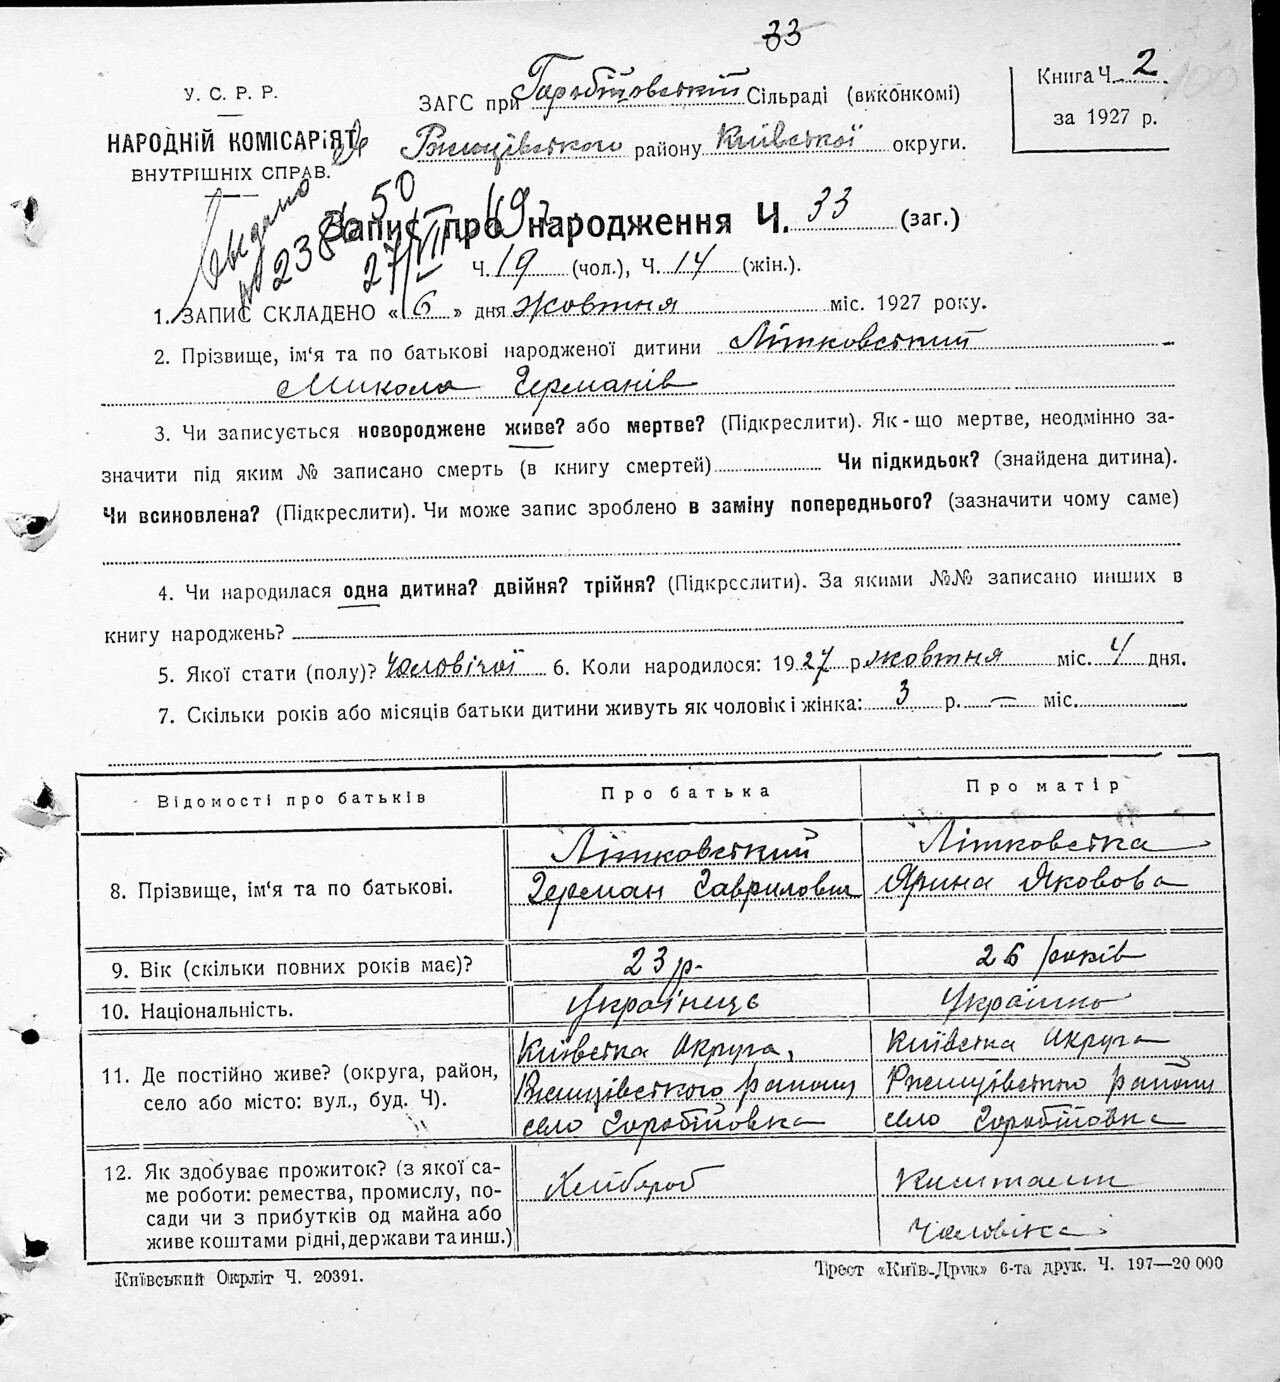 33
У. С. Р. Р.
НАРОДНІЙ КОМІСАРІЯТ
ВНУТРІШНІХ СПРАВ.
ЗАГС при Горобіївській Сільраді (виконкомі)
Ржищівського району Київської округи.
Книга Ч. 2
за 1927 р.
Выдано
2386 50
27/VII 49
Запис про народження Ч. 33 (заг.)
Ч. 19 (чол.), Ч. 14 (жін.).
1. ЗАПИС СКЛАДЕНО « 6 » дня жовтня міс. 1927 року.
2. Прізвище, ім'я та по батькові народженої дитини Літковський
Микола Германів
3. Чи записується новороджене живе? або мертве? (Підкреслити). Як-що мертве, неодмінно за-
значити під яким № записано смерть (в книгу смертей) Чи підкидьок? (знайдена дитина).
Чи всиновлена? (Підкреслити). Чи може запис зроблено в заміну попереднього? (зазначити чому саме)
4. Чи народилася одна дитина? двійня? трійня? (Підкреслити). За якими №№ записано инших в
книгу народжень?
5. Якої стати (полу)? Чоловічої 6. Коли народилося: 1927 р жовтня міс. 4 дня.
7. Скільки років або місяців батьки дитини живуть як чоловік і жінка: 3 р. — міс.
Відомості про батьків Про батька Про матір
8. Прізвище, ім'я та по батькові. Літковський Літковська
Герман Гаврилович Ярина Яковова
9. Вік (скільки повних років має)? 23 р. 26 років
10. Національність. Українець Українка
11. Де постійно живе? (округа, район, Київська Округа, Київська Округа
село або місто: вул., буд. Ч). Ржищівського району Ржищівського району
село Горобіївка село Горобіївка
12. Як здобуває прожиток? (з якої са- Хлібороб Коштами
ме роботи: ремества, промислу, по-
сади чи з прибутків од майна або Чоловіка
живе коштами рідні, держави та инш.)
Київський Окрліт Ч. 20391.
Трест «Київ-Друк» 6-та друк. Ч. 197—20 000